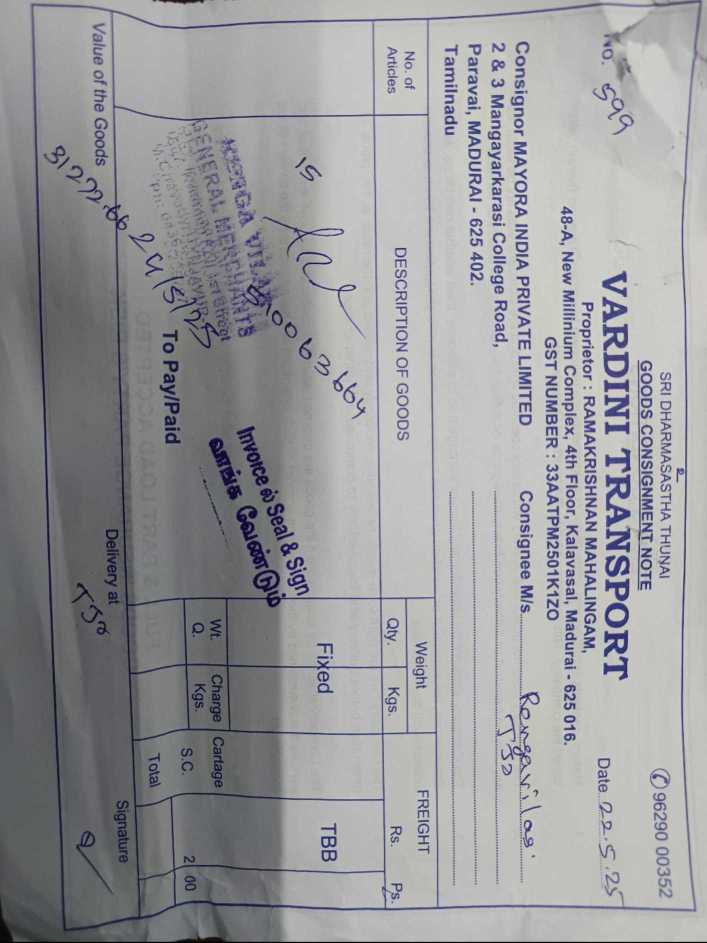 உ
SRI DHARMASASTHA THUNAI
GOODS CONSIGNMENT NOTE
✆ 96290 00352
VARDINI TRANSPORT
No. 599
Date 22.5.25
Proprietor : RAMAKRISHNAN MAHALINGAM,
48-A, New Millinium Complex, 4th Floor, Kalavasal, Madurai - 625 016.
GST NUMBER : 33AATPM2501K1ZO
Consignor MAYORA INDIA PRIVATE LIMITED
2 & 3 Mangayarkarasi College Road,
Paravai, MADURAI - 625 402.
Tamilnadu
Consignee M/s. Rengavilas.
TJO
No. of Articles
DESCRIPTION OF GOODS
Weight
Qty. Kgs.
FREIGHT
Rs. Ps.
15
510063664
Fixed
TBB
VILAS
GENERAL MERCHANTS
Invoice ல் Seal & Sign
வாங்க வேண்டும்
24/5/25
Wt. Q.
Charge Kgs.
Cartage
S.C. 2 00
Total
To Pay/Paid
Value of the Goods 31272.66
Delivery at
TJO
Signature